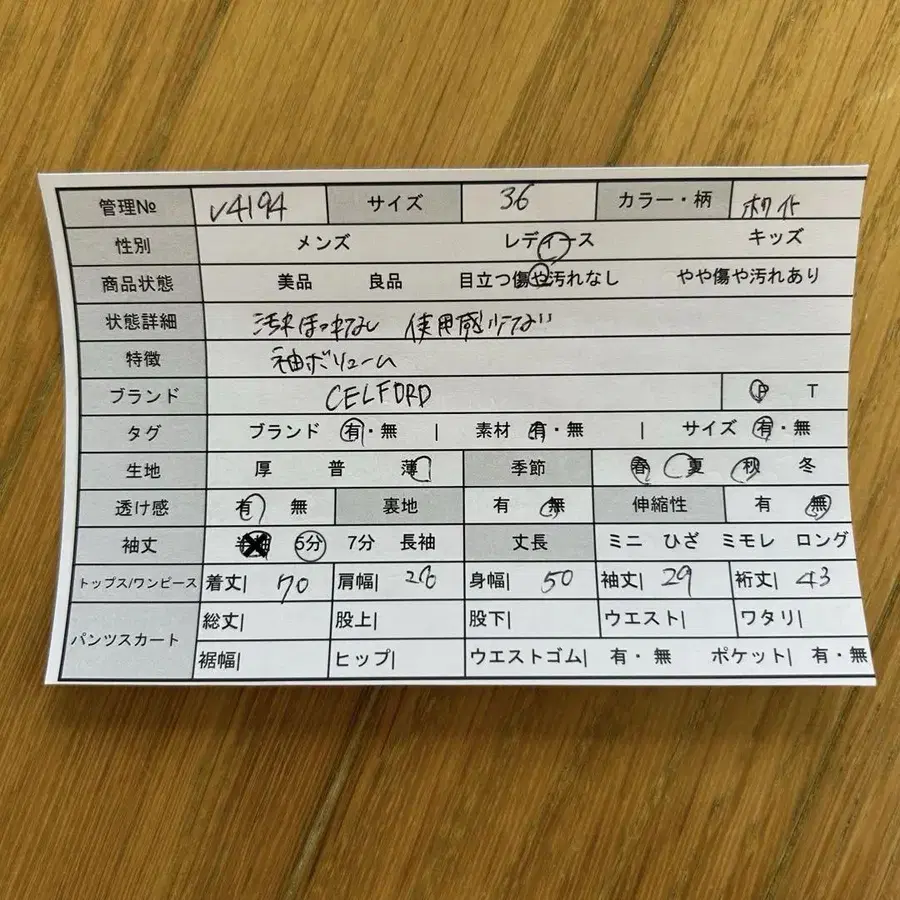 管理№ V4194 サイズ 36 カラー・柄 ホワイト
性別 メンズ レディース キッズ
商品状態 美品 良品 目立つ傷や汚れなし やや傷や汚れあり
状態詳細 汚れほつれなし 使用感少ない
特徴 袖ボリューム
ブランド CELFORD P T
タグ ブランド 有・無 | 素材 有・無 | サイズ 有・無
生地 厚 普 薄 季節 春 夏 秋 冬
透け感 有 無 裏地 有 無 伸縮性 有 無
袖丈 5分 7分 長袖 丈長 ミニ ひざ ミモレ ロング
トップス/ワンピース 着丈| 70 肩幅| 26 身幅| 50 袖丈| 29 裄丈| 43
パンツスカート 総丈| 股上| 股下| ウエスト| ワタリ|
裾幅| ヒップ| ウエストゴム| 有・無 ポケット| 有・無